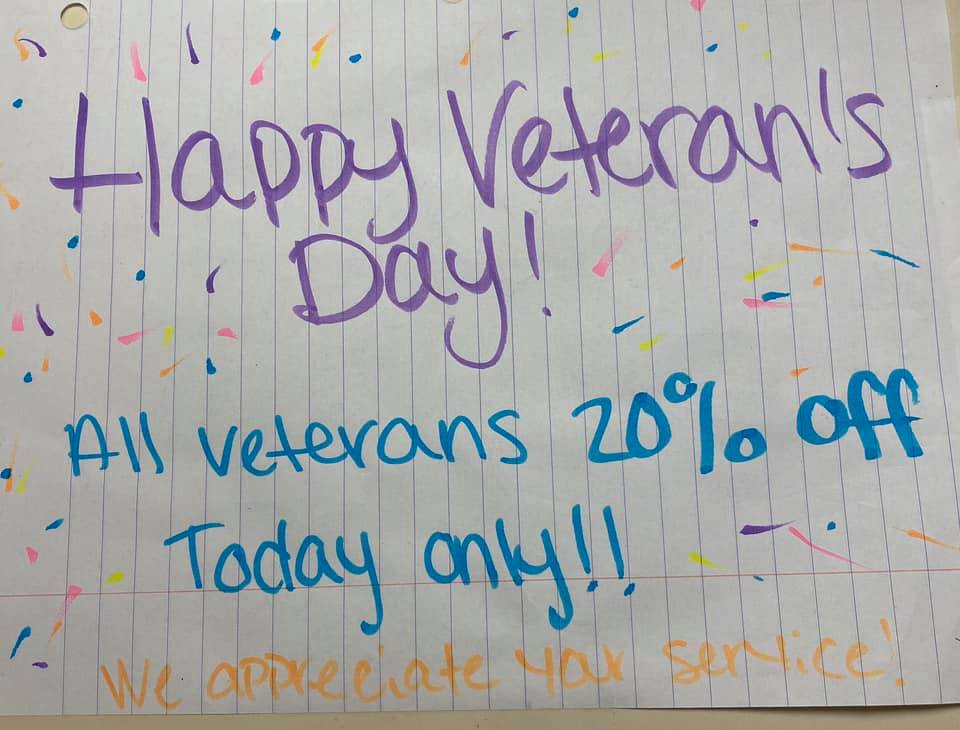 Happy Veteran's
Day!
All veterans 20% off
Today only!!
We appreciate your service!